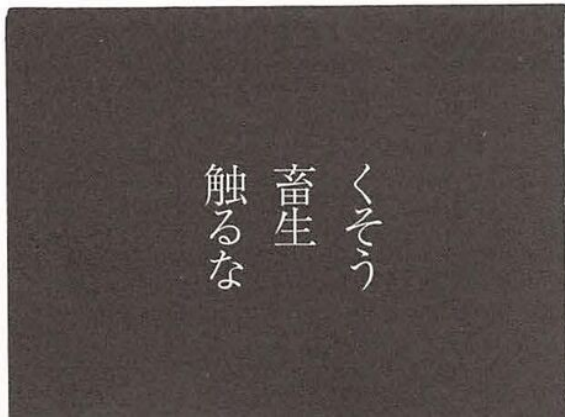 くそう
畜生
触るな